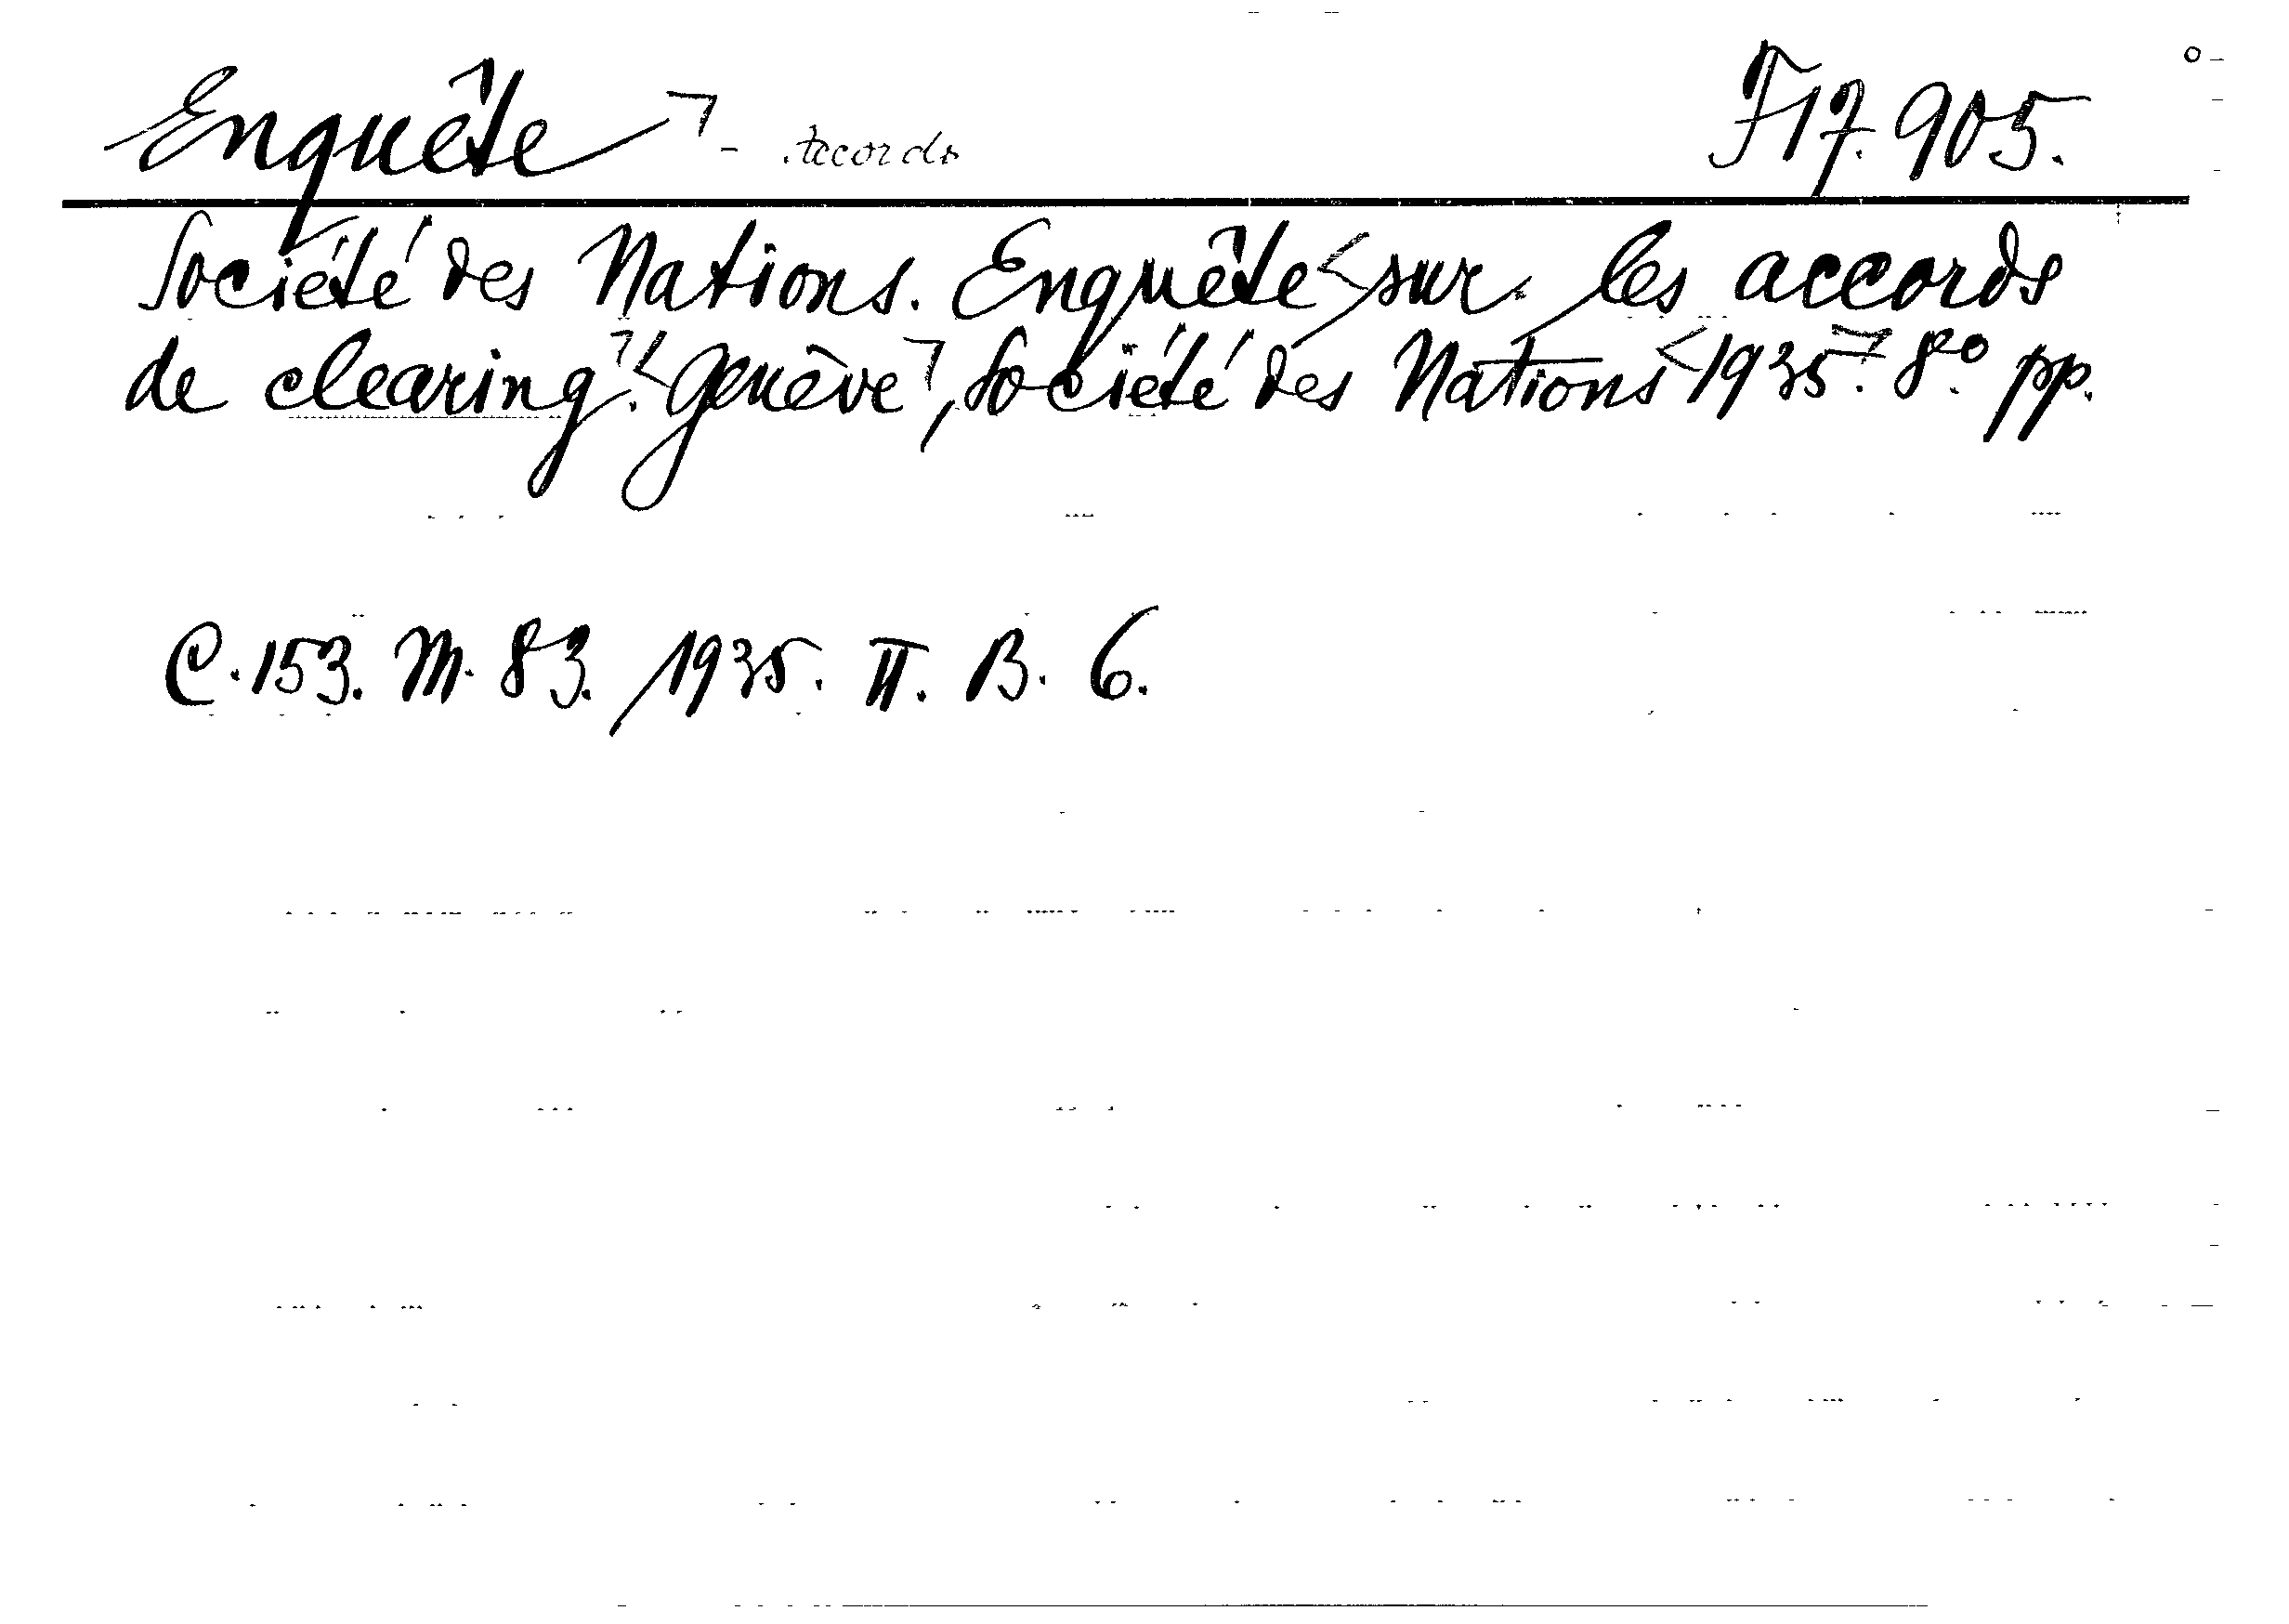 Enquête - Accords F 17.905.
Société des Nations. Enquête sur les accords
de clearing. Genève, Société des Nations 1935. 8° pp.
C. 153. M. 83. 1935. II. B. 6.